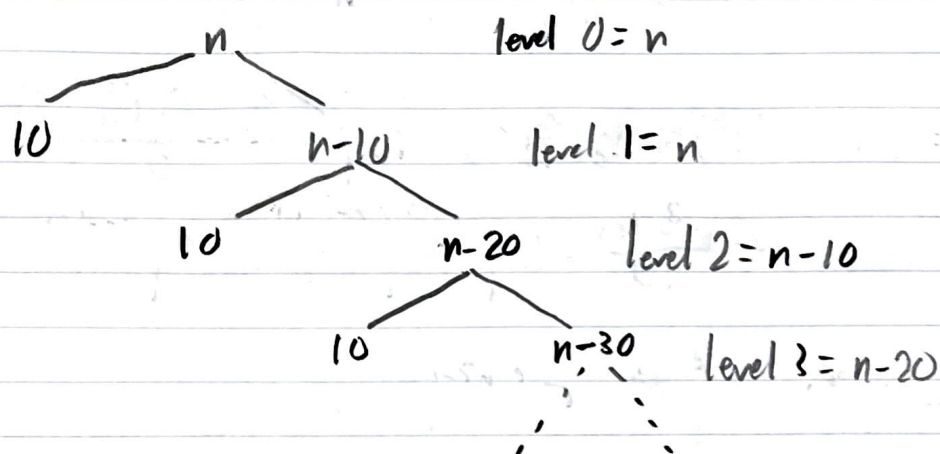 n level 0 = n
10 n-10 level 1 = n
10 n-20 level 2 = n-10
10 n-30 level 3 = n-20